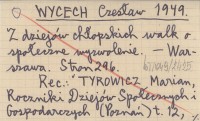 WYCECH Czesław 1949.
Z dziejów chłopskich walk o
społeczne wyzwolenie. — War-
szawa. Stron 296.
Rec.: TYROWICZ Marian,
Roczniki Dziejów Społecznych i
Gospodarczych (Poznań) t. 12,